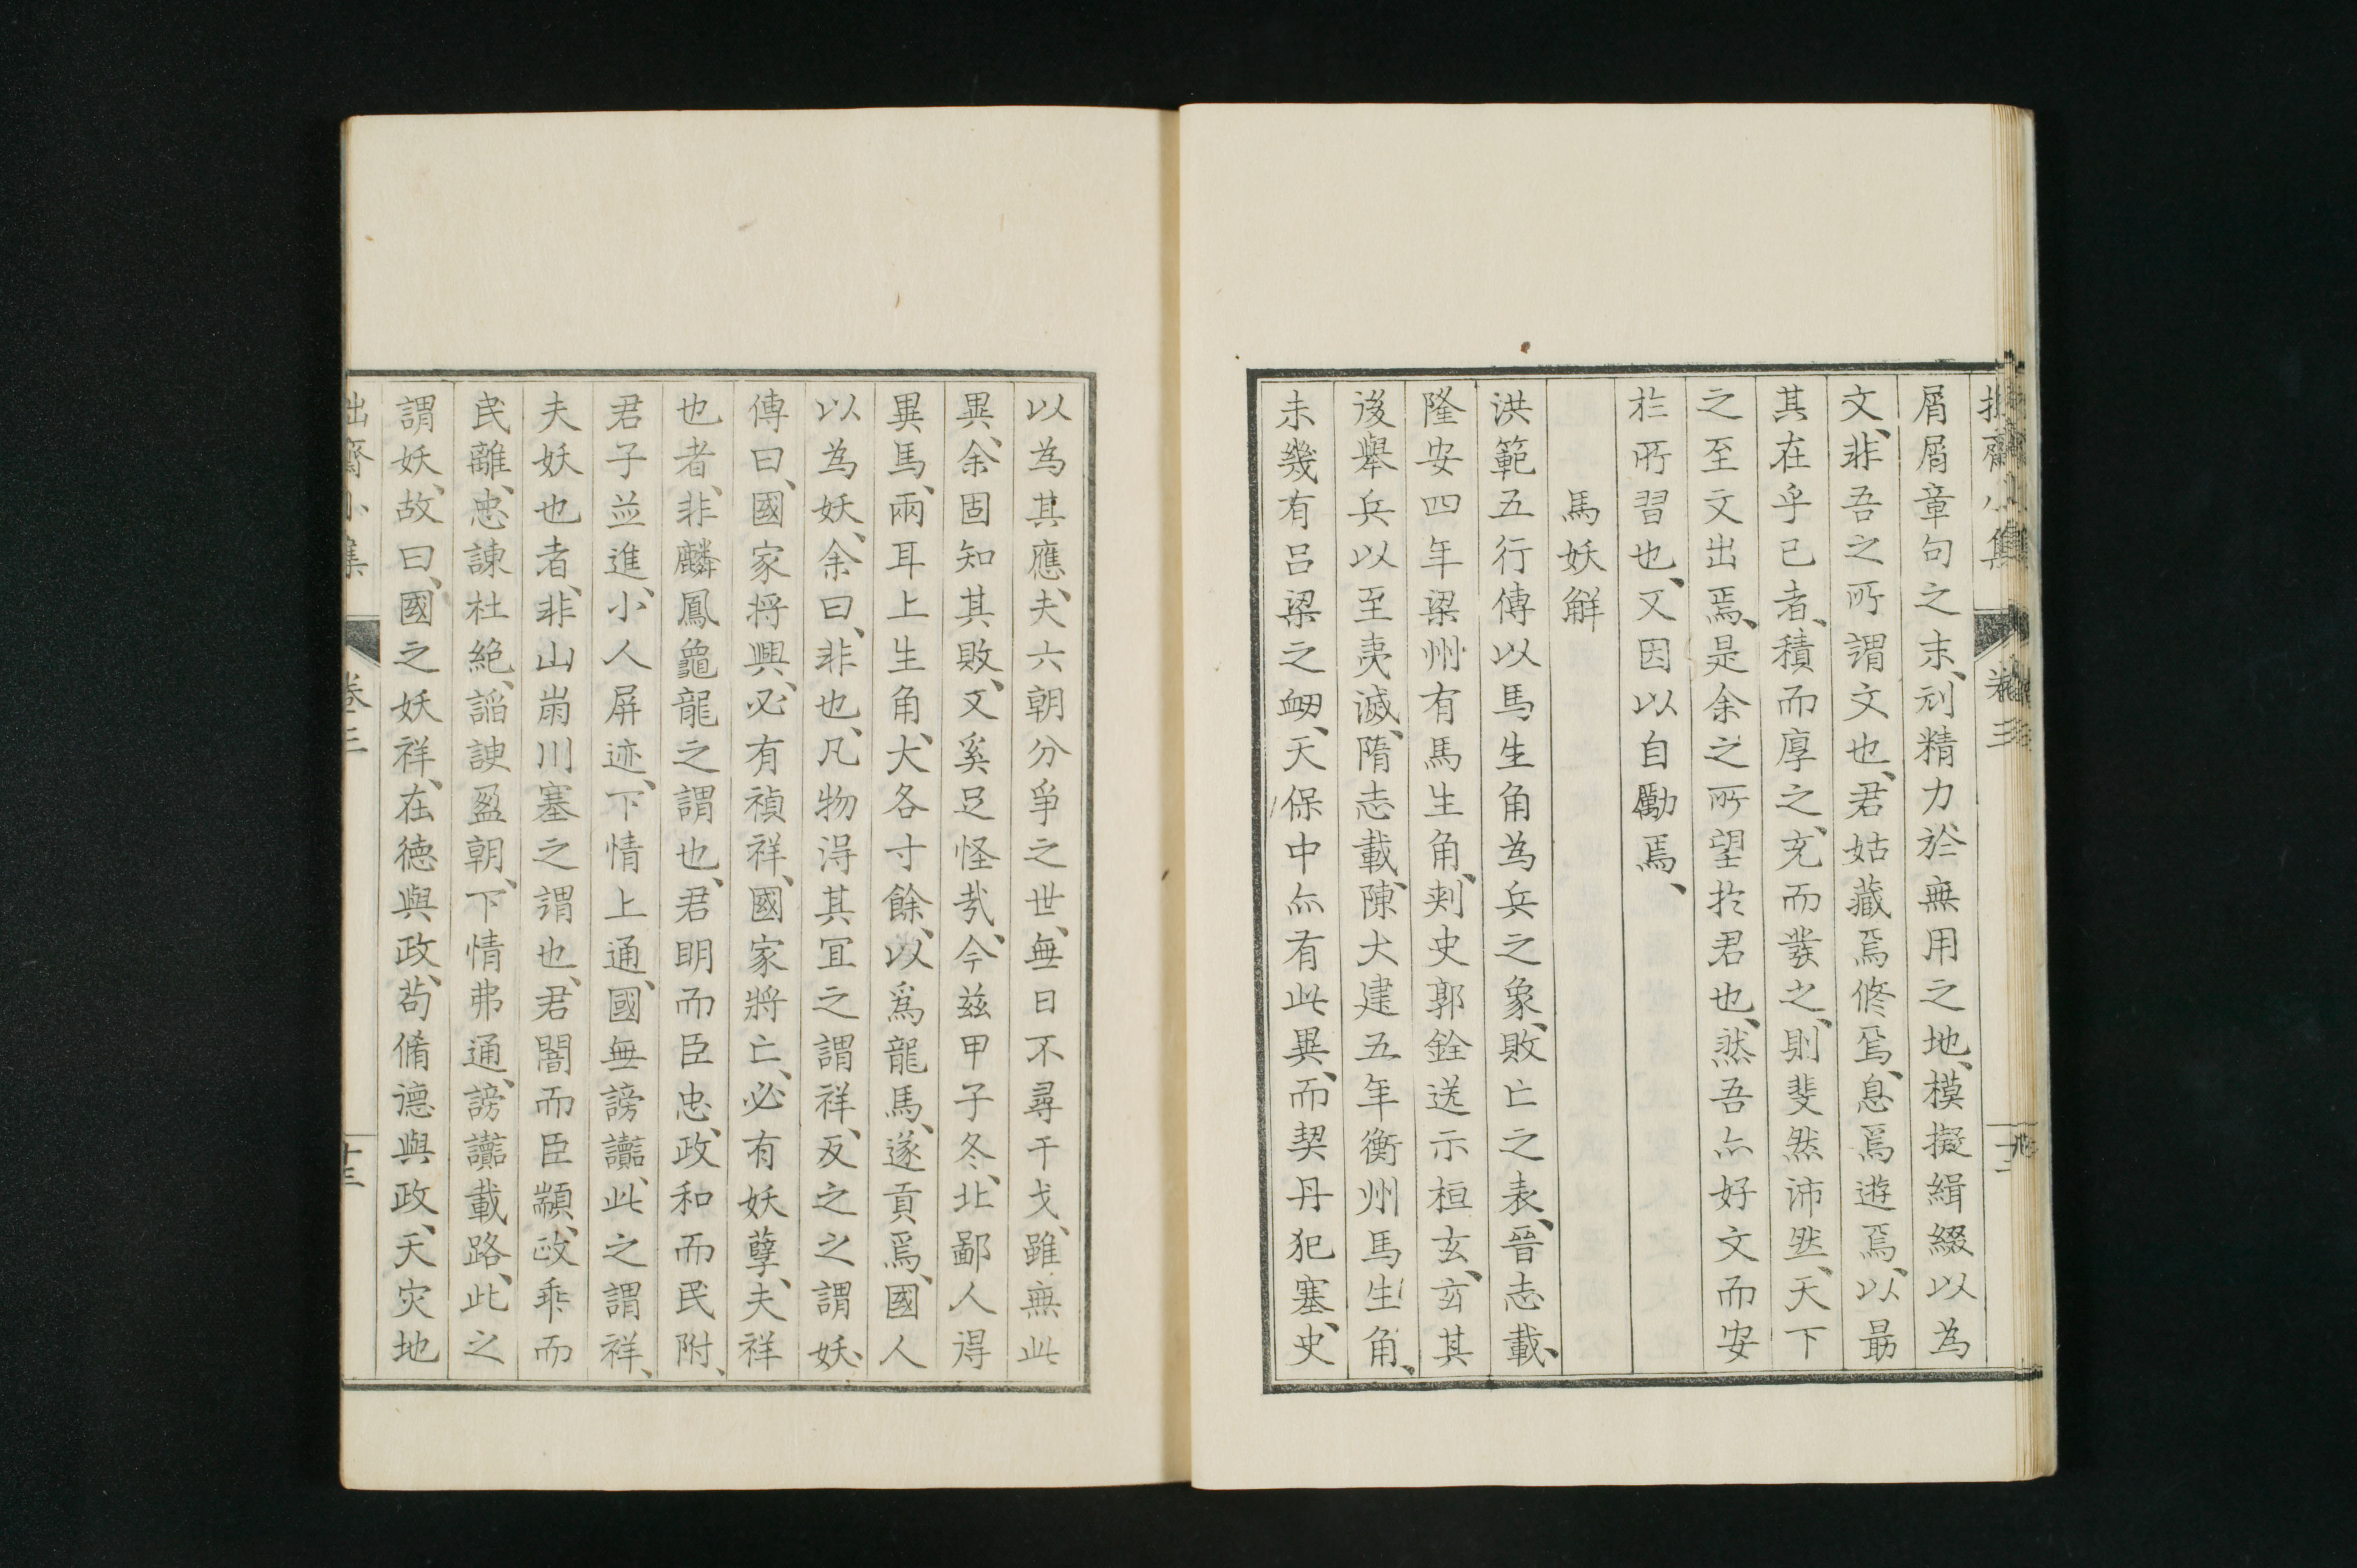 屑屑章句之末、刓精力、於無用之地、模擬緝綴以為
文、非吾之所謂文也、君姑藏焉修焉、息焉遊焉、以最
其在乎己者、積而厚之、充而發之、則斐然沛然、天下
之至文出焉、是余之所望於君也、然吾亦好文而安
於所習也、又因以自勵焉、
馬妖解
洪範五行傳以馬生角為兵之象、敗亡之表、晉志載、
隆安四年梁州有馬生角、刺史郭銓送示桓玄、玄其
後舉兵以至夷滅、隋志載、陳大建五年衡州馬生角、
未幾有呂梁之衂、天保中亦有此異、而契丹犯塞、史
以為其應、夫六朝分爭之世、無日不尋干戈、雖無此
異、余固知其敗、又奚足怪哉、今茲甲子冬、北鄙人得
異馬、兩耳上生角、大各寸餘、以爲龍馬、遂貢焉、國人
以為妖、余曰、非也、凡物得其宜之謂祥、反之之謂妖、
傳曰、國家将興、必有禎祥、國家將亡、必有妖孽、夫祥
也者、非麟鳳龜龍之謂也、君明而臣忠、政和而民附、
君子並進、小人屏迹、下情上通、國無謗讟、此之謂祥、
夫妖也者、非山崩川塞之謂也、君闇而臣顓、政乖而
民離、忠諫杜絶、謟諛盈朝、下情弗通、謗讟載路、此之
謂妖、故曰、國之妖祥、在徳與政、苟脩德與政、天灾地
拙齋小集 卷三 十三